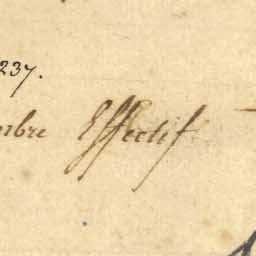 237.
mbre Effectif